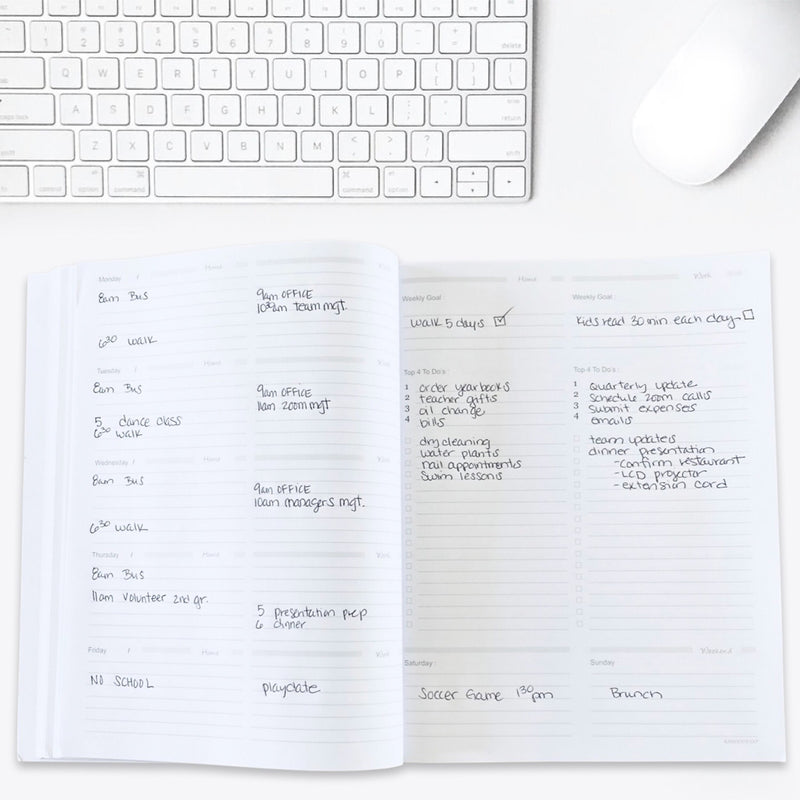 ~ ! @ # $ % ^ & * ( ) - +
1 2 3 4 5 6 7 8 9 0 - = delete
Q W E R T Y U I O P { } |
[ ] \
caps lock A S D F G H J K L : "
; ' return
Z X C V B N M < > ? shift
, . /
control option command command option
Monday / Home Work
8am Bus 9am OFFICE
10:30am team mgt.
6:30 walk
Tuesday /
8am Bus 9am OFFICE
11am zoom mgt
5 dance class
6:30 walk
Wednesday /
8am Bus 9am OFFICE
10am managers mgt.
6:30 walk
Thursday / Home Work
8am Bus
11am Volunteer 2nd gr.
5 presentation prep
6 dinner
Friday / Home Work
NO SCHOOL playdate
Home Work
Weekly Goal
walk 5 days
Weekly Goal
Kids read 30 min each day
Top 4 To Do's:
1 order yearbooks
2 teacher gifts
3 oil change
4 bills
dry cleaning
water plants
nail appointments
swim lessons
Top 4 To Do's:
1 Quarterly update
2 Schedule zoom calls
3 submit expenses
4 emails
team updates
dinner presentation
-confirm restaurant
-LCD projector
-extension cord
Weekend
Saturday:
Soccer Game 1:30pm
Sunday
Brunch